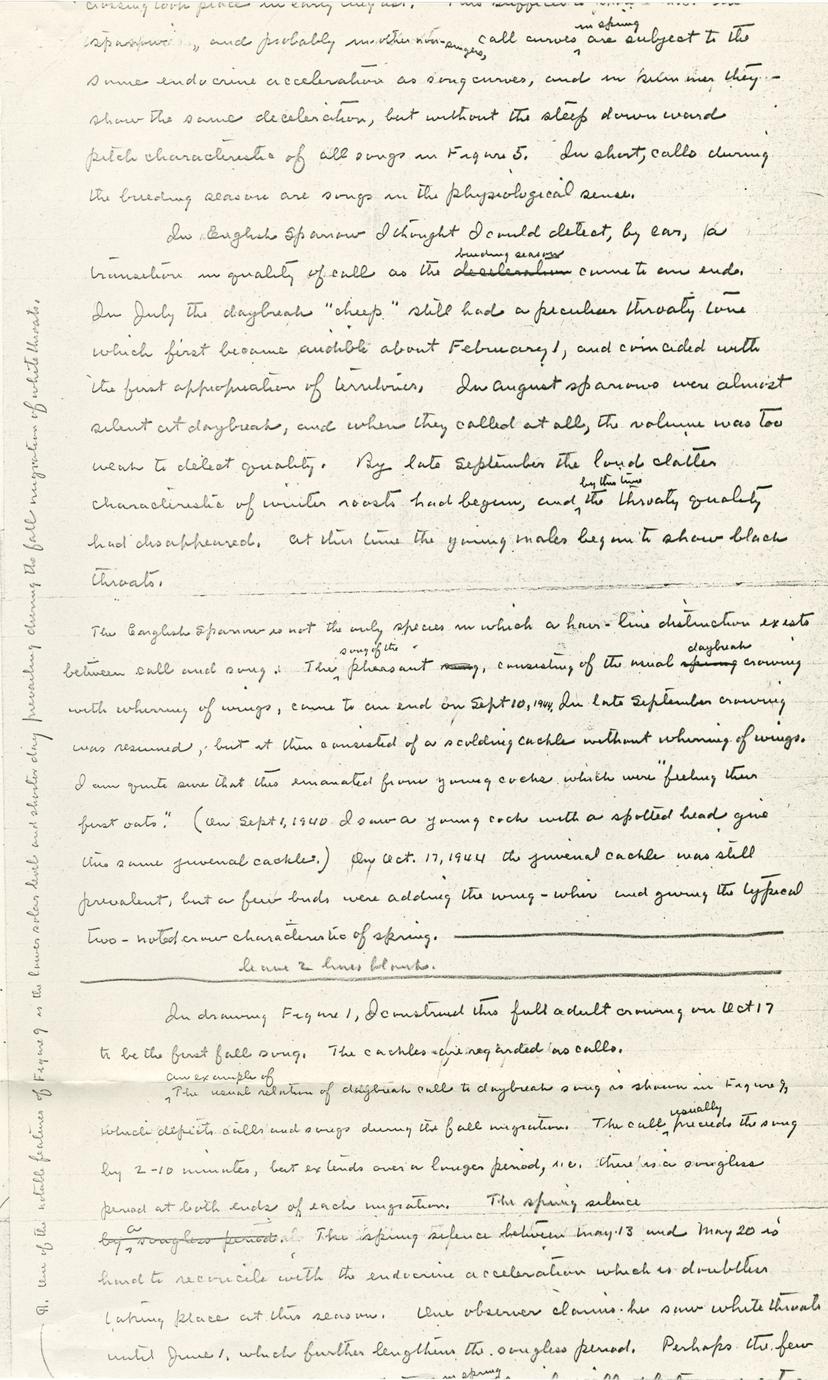 crossing took place in early August. This suffices
and probably in other non-singers, call curves in spring are subject to the
same endocrine acceleration as song curves, and in summer they
show the same deceleration, but without the steep downward
pitch characteristic of all songs in Figure 5. In short, calls during
the breeding season are songs in the physiological sense.
In English Sparrow I thought I could detect, by ear, a
breeding season
transition in quality of call as the deceleration came to an end.
In July the daybreak "cheep" still had a peculiar throaty tone
which first became audible about February 1, and coincided with
the first appropriation of territories. In August sparrows were almost
silent at daybreak, and when they called at all, the volume was too
weak to detect quality. By late September the loud clatter
by this time
characteristic of winter roosts had begun, and the throaty quality
had disappeared. At this time the young males begun to show black
throats.
The English Sparrow is not the only species in which a hair-line distinction exists
song of the daybreak
between call and song. The pheasant song, consisting of the usual spring crowing
with whirring of wings, came to an end on Sept 10, 1944. In late September crowing
was resumed, but it then consisted of a scolding cackle without whirring of wings.
I am quite sure that this emanated from young cocks which were "feeling their
first oats." (On Sept 1, 1940 I saw a young cock with a spotted head give
this same juvenal cackle.) On Oct. 17, 1944 the juvenal cackle was still
prevalent, but a few birds were adding the wing-whir and giving the typical
two-noted crow characteristic of spring.
leave 2 lines blank.
In drawing Figure 1, I construed this full adult crowing on Oct 17
to be the first fall song. The cackles are regarded as calls.
an example of
The usual relation of daybreak call to daybreak song is shown in Figure 9,
usually
which depicts calls and songs during the fall migration. The call precedes the song
by 2-10 minutes, but extends over a longer period, i.e. there is a songless
period at both ends of each migration. The spring silence
by a songless period. The spring silence between May 13 and May 20 is
hard to reconcile with the endocrine acceleration which is doubtless
taking place at this season. One observer claims he saw whitethroats
until June 1, which further lengthens the songless period. Perhaps the few
in spring
One of the notable features of Figure 9 is the lower solar levels and shorter day prevailing during the fall migration of whitethroats.